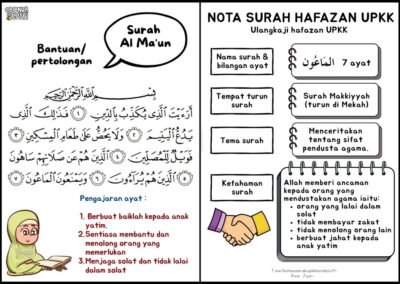 Surah
Al Ma'un
Bantuan/
pertolongan
بِسْمِ اللَّهِ الرَّحْمَٰنِ الرَّحِيمِ
أَرَءَيْتَ الَّذِي يُكَذِّبُ بِالدِّينِ ١ فَذَٰلِكَ الَّذِي
يَدُعُّ الْيَتِيمَ ٢ وَلَا يَحُضُّ عَلَىٰ طَعَامِ الْمِسْكِينِ ٣
فَوَيْلٌ لِّلْمُصَلِّينَ ٤ الَّذِينَ هُمْ عَن صَلَاتِهِمْ سَاهُونَ
٥ الَّذِينَ هُمْ يُرَاءُونَ ٦ وَيَمْنَعُونَ الْمَاعُونَ ٧
Pengajaran ayat :
1. Berbuat baiklah kepada anak
yatim.
2.Sentiasa membantu dan
menolong orang yang
memerlukan
3.Menjaga solat dan tidak lalai
dalam solat
NOTA SURAH HAFAZAN UPKK
Ulangkaji hafazan UPKK
Nama surah &
bilangan ayat
الْمَاعُون 7 ayat
Tempat turun
surah
Surah Makkiyyah
(turun di Mekah)
Tema surah
Menceritakan
tentang sifat
pendusta agama.
Kefahaman
surah
Allah memberi ancaman
kepada orang yang
mendustakan agama iaitu:
• orang yang lalai dalam
solat
• tidak membayar zakat
• tidak menolong orang lain
• berbuat jahat kepada
anak yatim